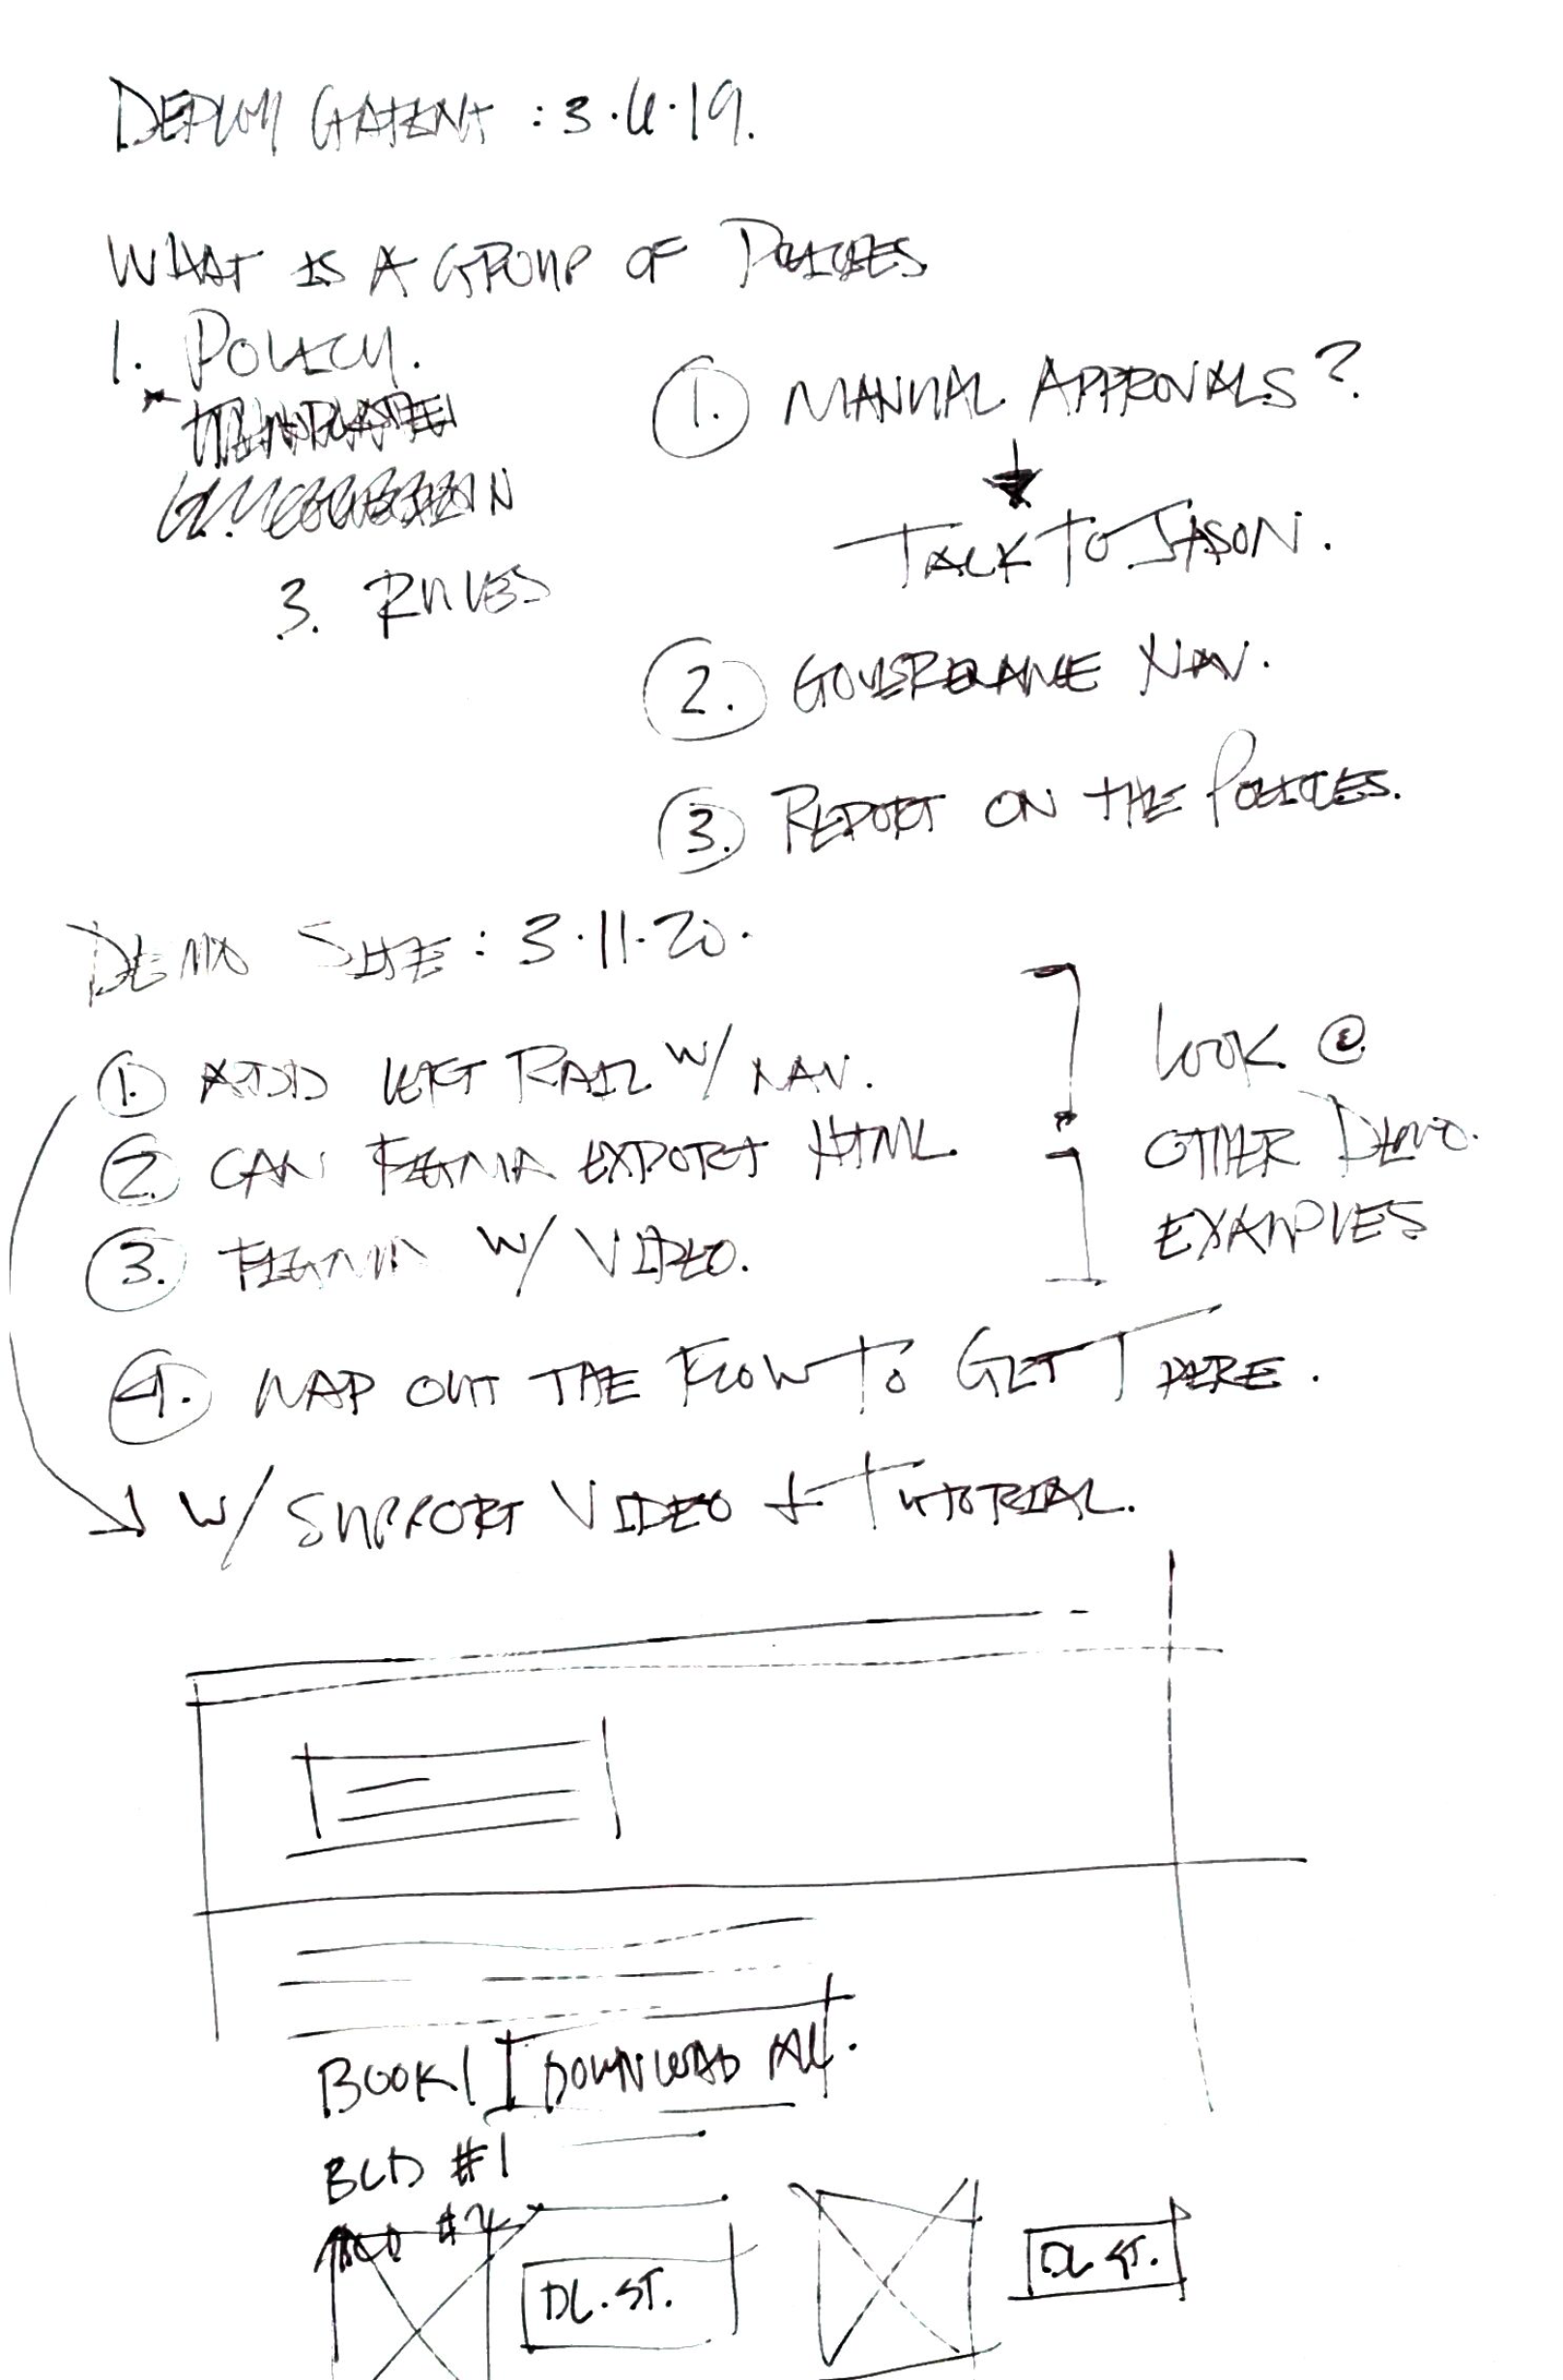 DEPLOY : 3.4.19.
WHAT IS A GROUP OF POLICIES
1. POLICY.
3. RULES
1. MANUAL APPROVALS?
TALK TO JASON.
2. NAV.
3. REPORT ON THE POLICIES.
DEMO SITE: 3.11.20.
1. ADD LEFT RAIL W/ NAV.
2. CAN FIGMA EXPORT HTML.
3. FIGMA W/ VIDEO.
LOOK @
OTHER DEMO.
EXAMPLES
4. MAP OUT THE FLOW TO GET THERE.
W/ SUPPORT VIDEO + TUTORIAL.
BOOK 1 DOWNLOAD ALL.
BLD #1
#2
DL.ST.
DL.ST.